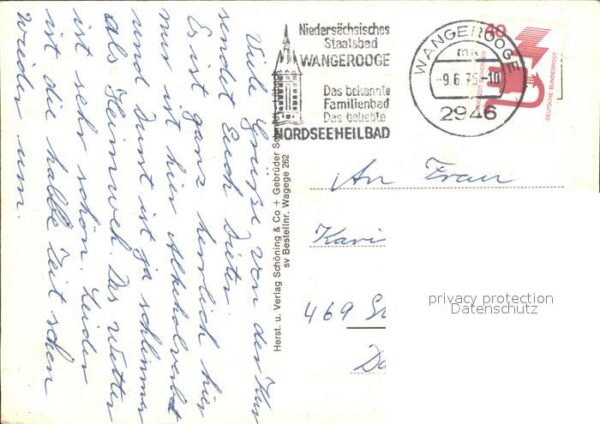 Viele Grüße von der Kur
sendet Euch Dieter
Es ist ganz herrlich hier
nur ist hier Alkoholverbot
und Durst ist ja schlimmer
als Heimweh. Das Wetter
ist sehr schön. Leider
ist die halbe Zeit schon
wieder um.
Herst. u. Verlag Schöning & Co + Gebrüder
sv Bestellnr. Wagege 262
Niedersächsisches
Staatsbad
WANGEROOGE
Das bekannte
Familienbad
Das beliebte
NORDSEEHEILBAD
WANGEROOGE
-9.6.75-10
2946
40
DEUTSCHE BUNDESPOST
An Frau
Kari
469
privacy protection
Datenschutz